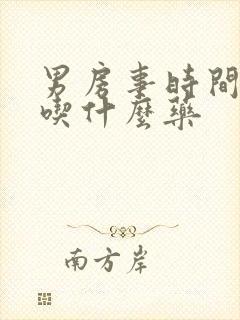 男房事時間
喫什麼藥
南方岸